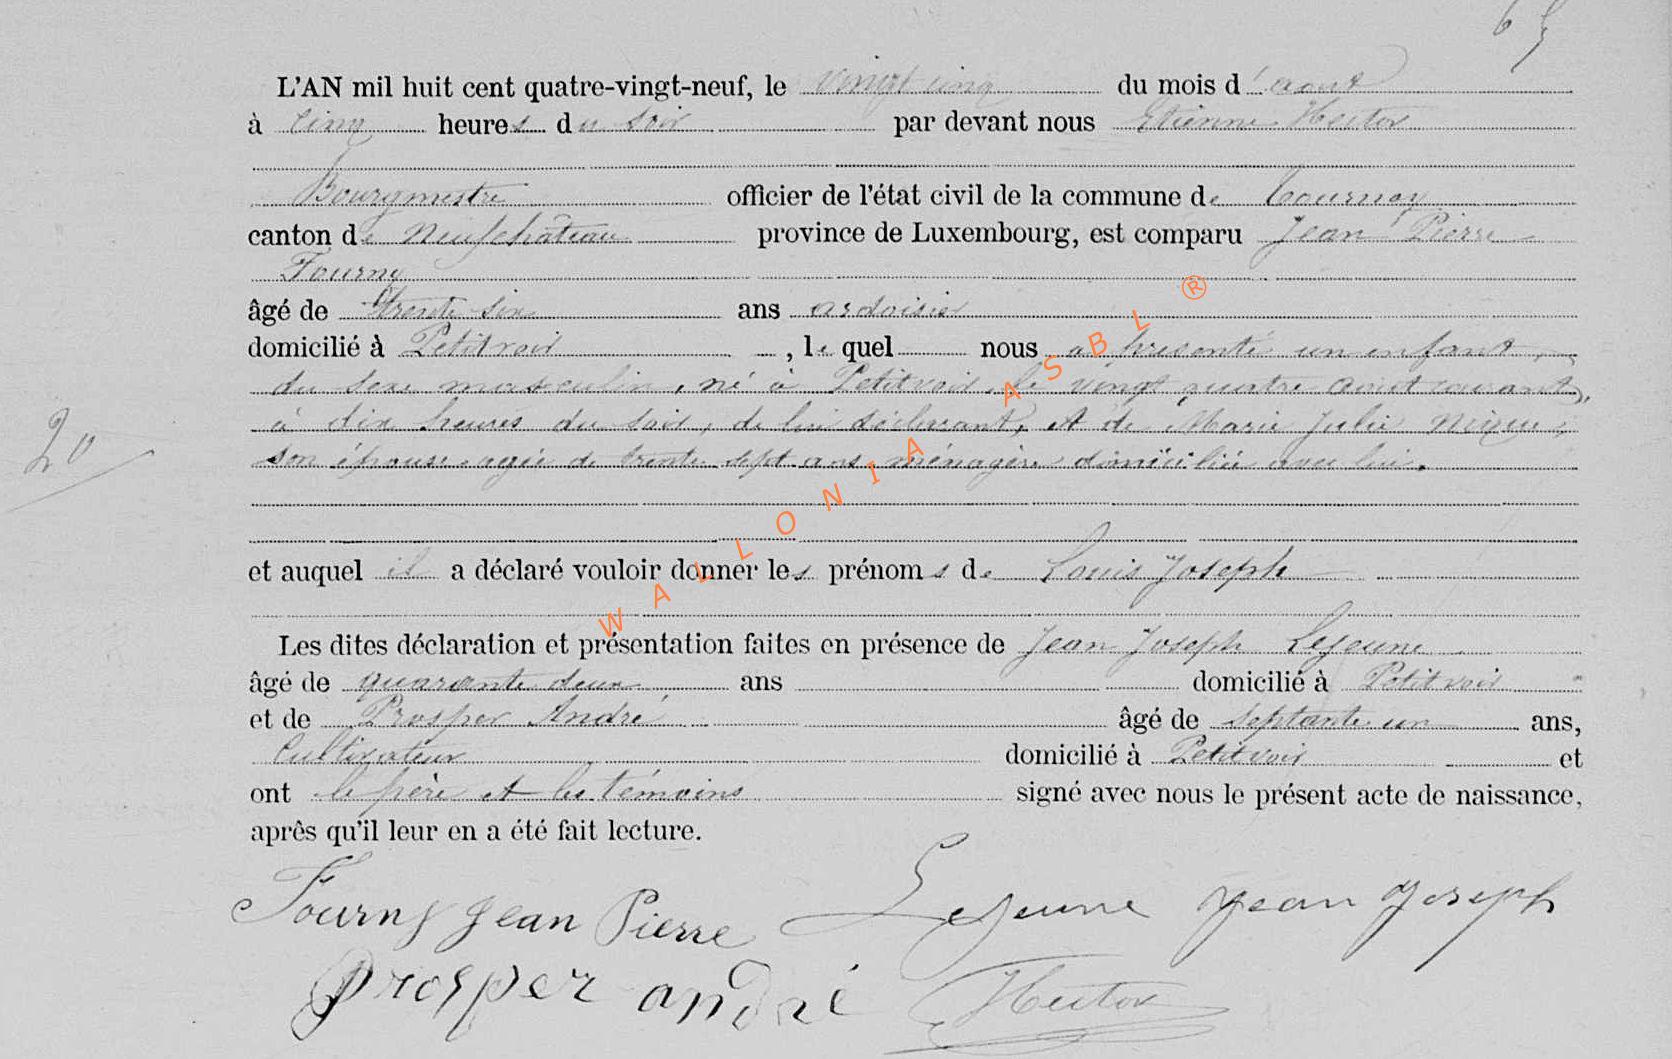 65
L'AN mil huit cent quatre-vingt-neuf, le vingt cinq du mois d'aout
à cinq heures du soir par devant nous Etienne Hector
Bourgmestre officier de l'état civil de la commune de Tournay
canton de Neufchâteau province de Luxembourg, est comparu Jean Pierre
Fourny
âgé de trente six ans ardoisier
domicilié à Petitvoir, lequel nous a présenté un enfant
du sexe masculin, né à Petitvoir, le vingt quatre aout courant,
à dix heures du soir, de lui déclarant, et de Marie Julie
20
son épouse agée de trente sept ans ménagère domiciliée avec lui.
et auquel il a déclaré vouloir donner les prénoms de Louis Joseph
Les dites déclaration et présentation faites en présence de Jean Joseph Lejeune
âgé de quarante deux ans domicilié à Petitvoir
et de Prosper André âgé de septante un ans,
Cultivateur domicilié à Petitvoir et
ont le père et les témoins signé avec nous le présent acte de naissance,
après qu'il leur en a été fait lecture.
Fourny Jean Pierre Lejeune Jean Joseph
Prosper andré Hector
WALLONIA ASBL ®